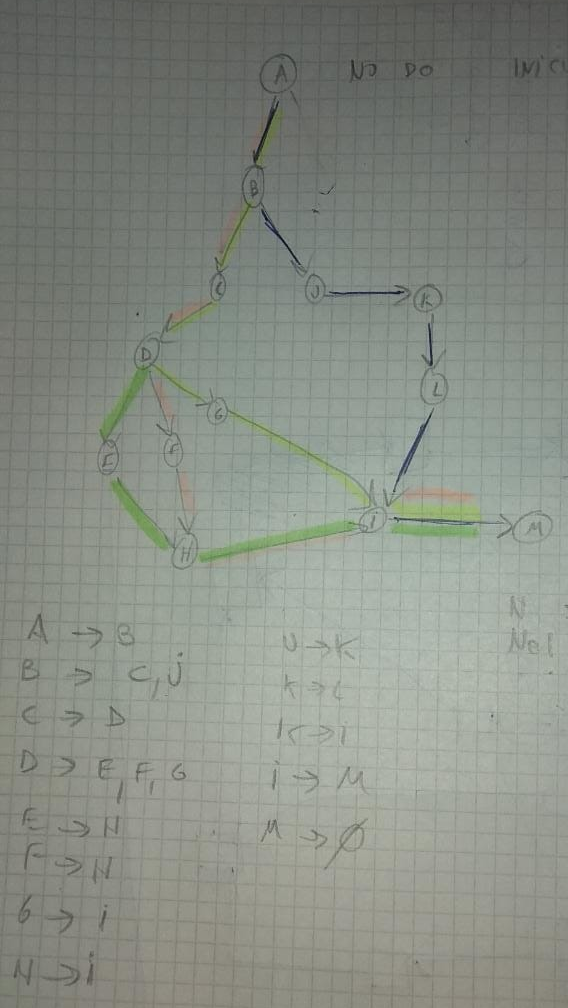 A NO DO INICI
B
C J K
D L
G
E F
i M
H
N
Nel
A → B
B → C, J
C → D
D → E, F, G
E → H
F → H
G → i
H → i
J → K
K → L
K → i
i → M
M → Ø